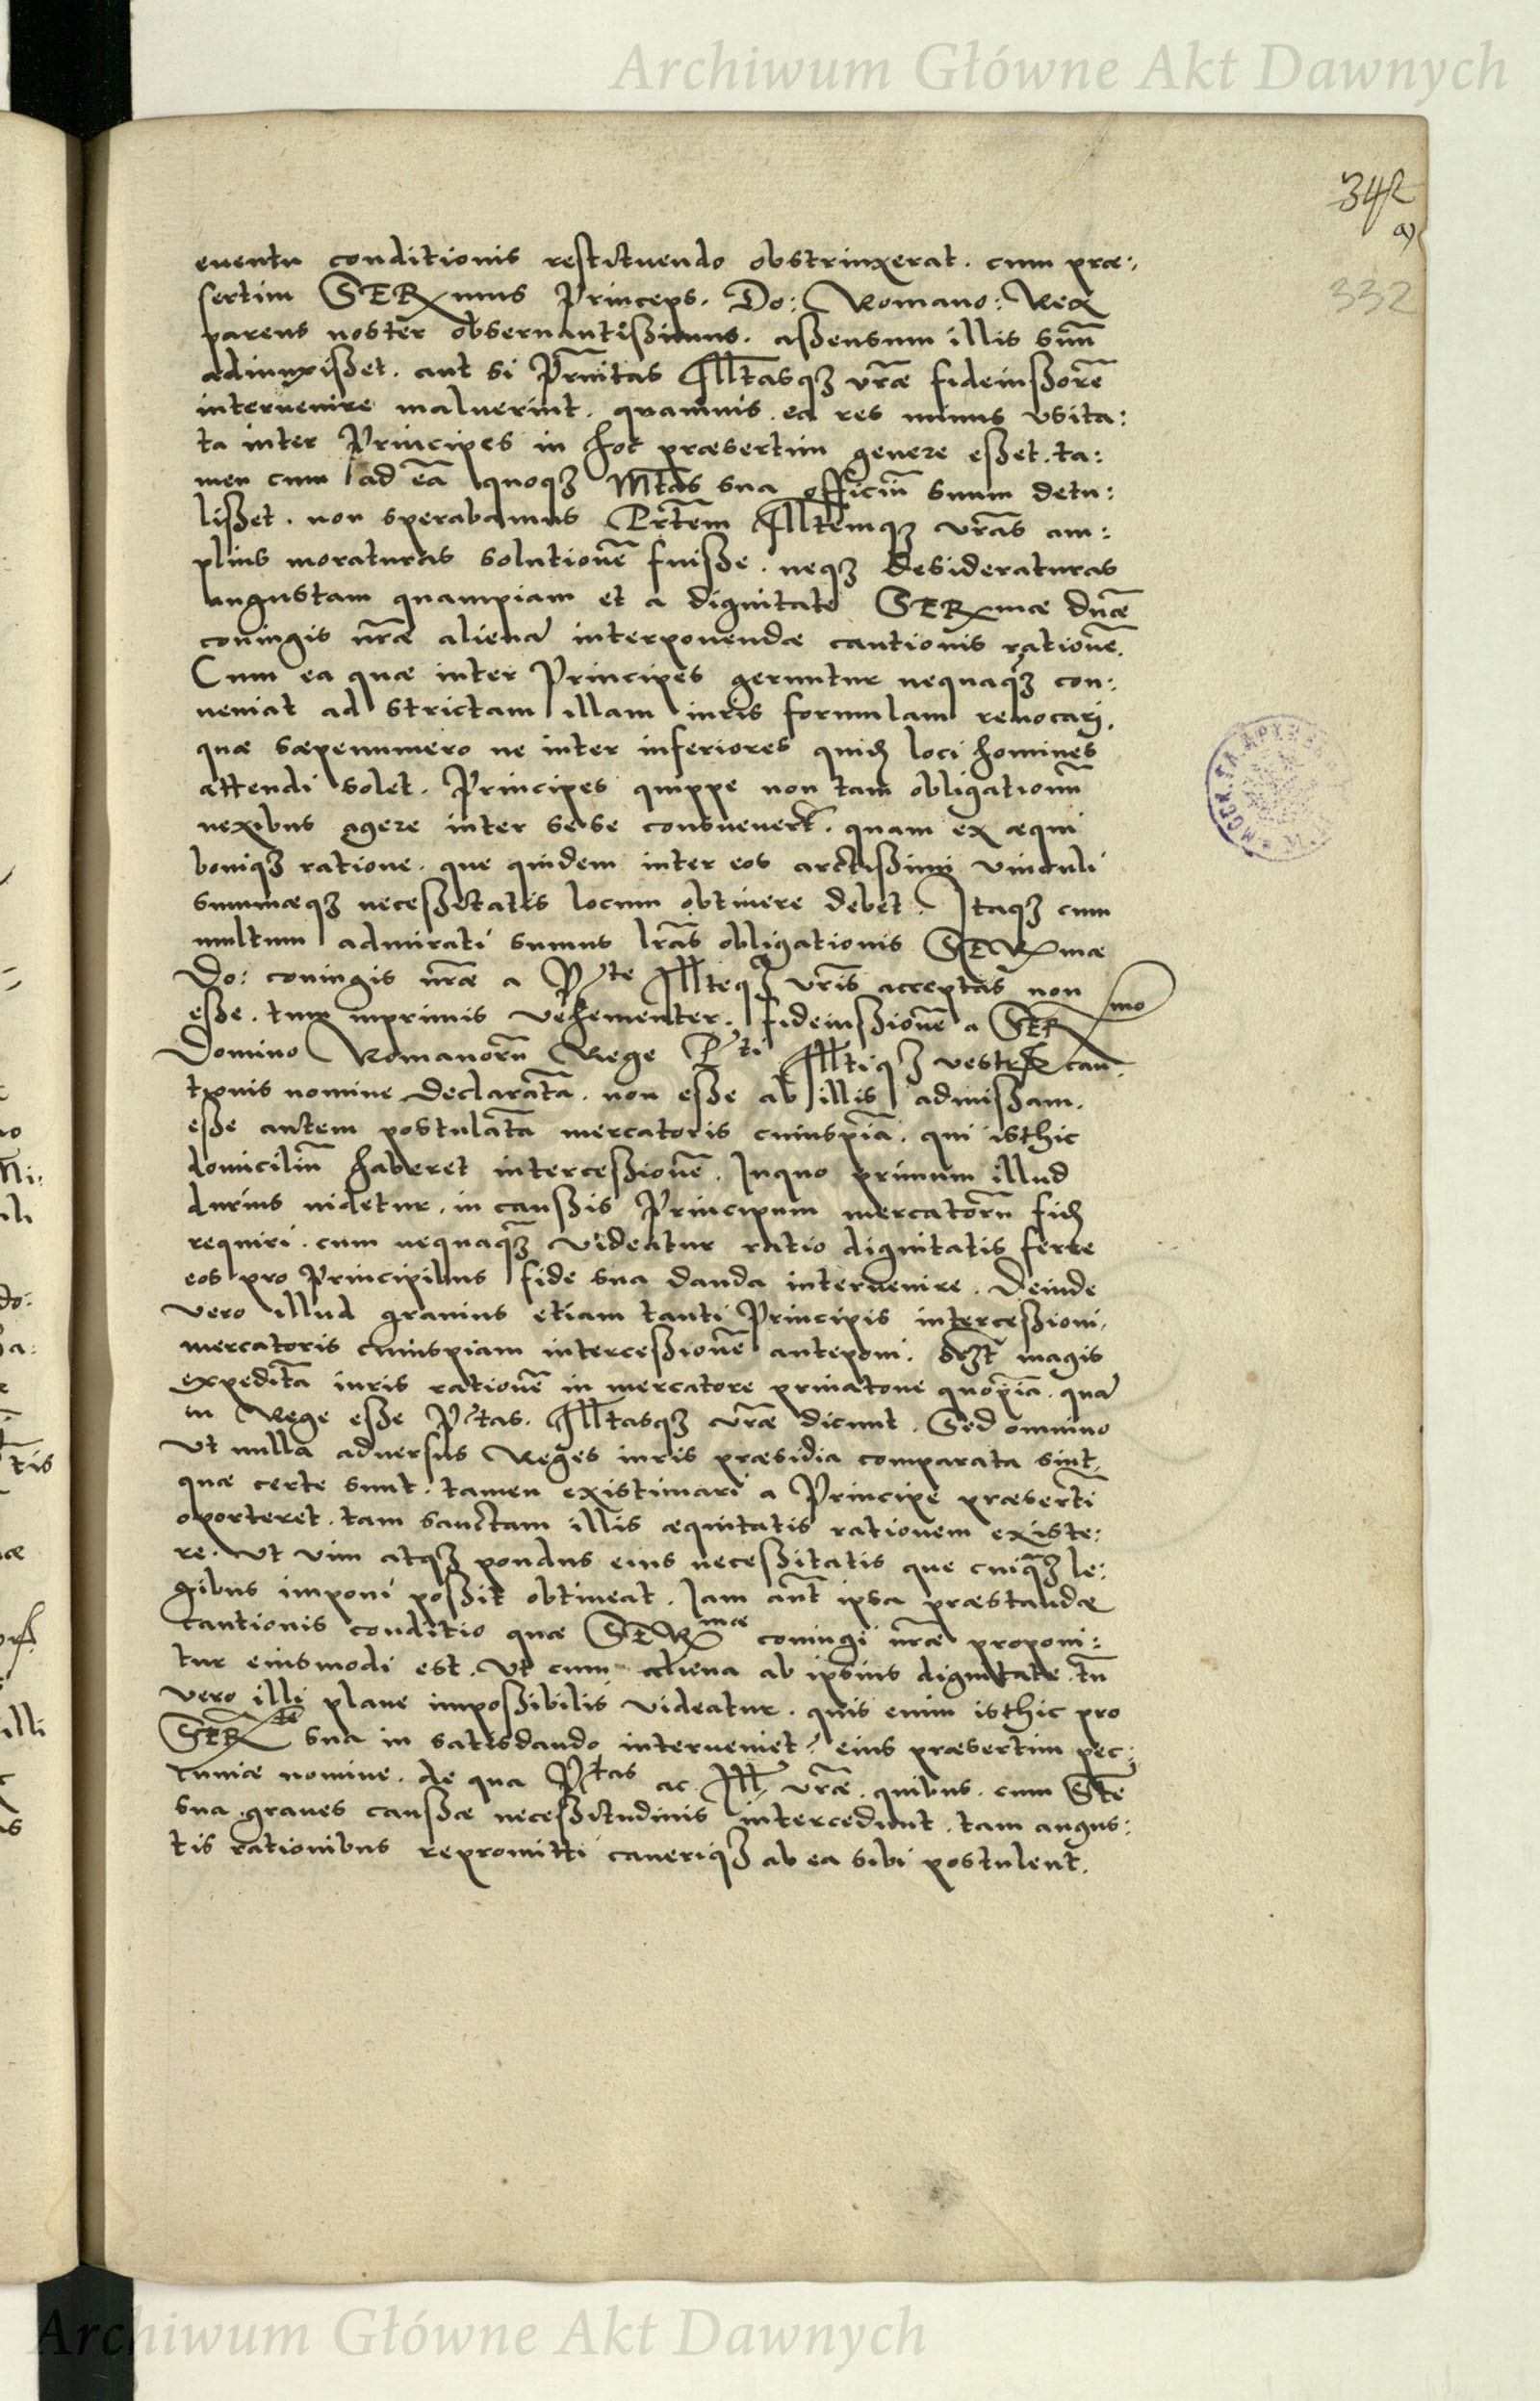 Archiwum Główne Akt Dawnych
342
a)
332
euentu conditionis restituendo obstrinxerat. cum præ:
sertim SERmus Princeps. Do: Romano: Rex
parens noster obseruantißimus. aßensum illis suũ
adiunxißet. aut si Pr̃nitas Illtasqꝫ vr̃æ fideiußorẽ
interuenire maluerint. quamuis ea res minus vsita:
ta inter Principes in hoc præsertim genere eßet. ta:
men cum ad eã quoqꝫ Mtas sua officiũ suum detu:
lißet. non sperabamus Prtem Illtemqꝫ vr̃as am:
plius moraturas solutionẽ fuiße. neqꝫ desideraturas
angustam quampiam et a dignitate SERmæ dnæ
coniugis nr̃æ alienã interponendæ cautionis rationẽ.
Cum ea quæ inter Principes geruntur nequaqꝫ con:
ueniat ad strictam illam iuris formulam reuocari.
quæ sæpenumero ne inter inferiores quidẽ loci homines
attendi solet. Principes quippe non tam obligationũ
nexibus agere inter sese consueuert̃. quam ex æqui
boniqꝫ ratione. que quidem inter eos arctißimi vinculi
summæqꝫ neceßitatis locum obtinere debet. Itaqꝫ cum
multum admirati sumus lr̃as obligationis SERmæ
Do: coniugis nr̃æ a Pte Illteqꝫ vr̃is acceptas non
eße. tum inprimis vehementer. fideiußionẽ a SERmo
Domino Romanorũ Rege Pti Illtiqꝫ vestræ cau:
tionis nomine declaratã. non eße ab illis admißam.
eße autem postulatã mercatoris cuiuspiã. qui isthic
domiciliũ haberet interceßionẽ. Inquo primum illud
durius uidetur. in caußis Principum mercatorũ fidẽ
requiri. cum nequaqꝫ videatur ratio dignitatis ferre
eos pro Principibus fide sua danda interuenire. Deinde
vero illud grauius etiam tanti Principis interceßioni.
mercatoris cuiuspiam interceßionẽ anteponi. magis
expeditã iuris rationẽ in mercatore priuatoue quopiã. quã
in Rege eße Ptas. Illtasqꝫ vr̃æ dicunt. Sed omnino
vt nulla aduersus Reges iuris præsidia comparata sint.
quæ certe sunt. tamen existimari a Principe præsertĩ
oporteret. tam sanctam illis æquitatis rationem existe:
re. vt vim atqꝫ pondus eius neceßitatis que cuiqꝫ le:
gibus imponi poßit obtineat. Iam aũt ipsa præstandæ
cautionis conditio quæ SERmæ coniugi nr̃æ proponi:
tur eiusmodi est. vt cum aliena ab ipsius dignitate. tũ
vero illi plane impoßibilis videatur. quis enim isthic pro
SERte sua in satisdando interueniet? eius præsertim pec:
cuniæ nomine. de qua Ptas ac Ill. vr̃æ. quibus. cum Ste
sua graues caußæ neceßitudinis intercedunt. tam angus:
tis rationibus repromitti caueriqꝫ ab ea sibi postulent.
Archiwum Główne Akt Dawnych